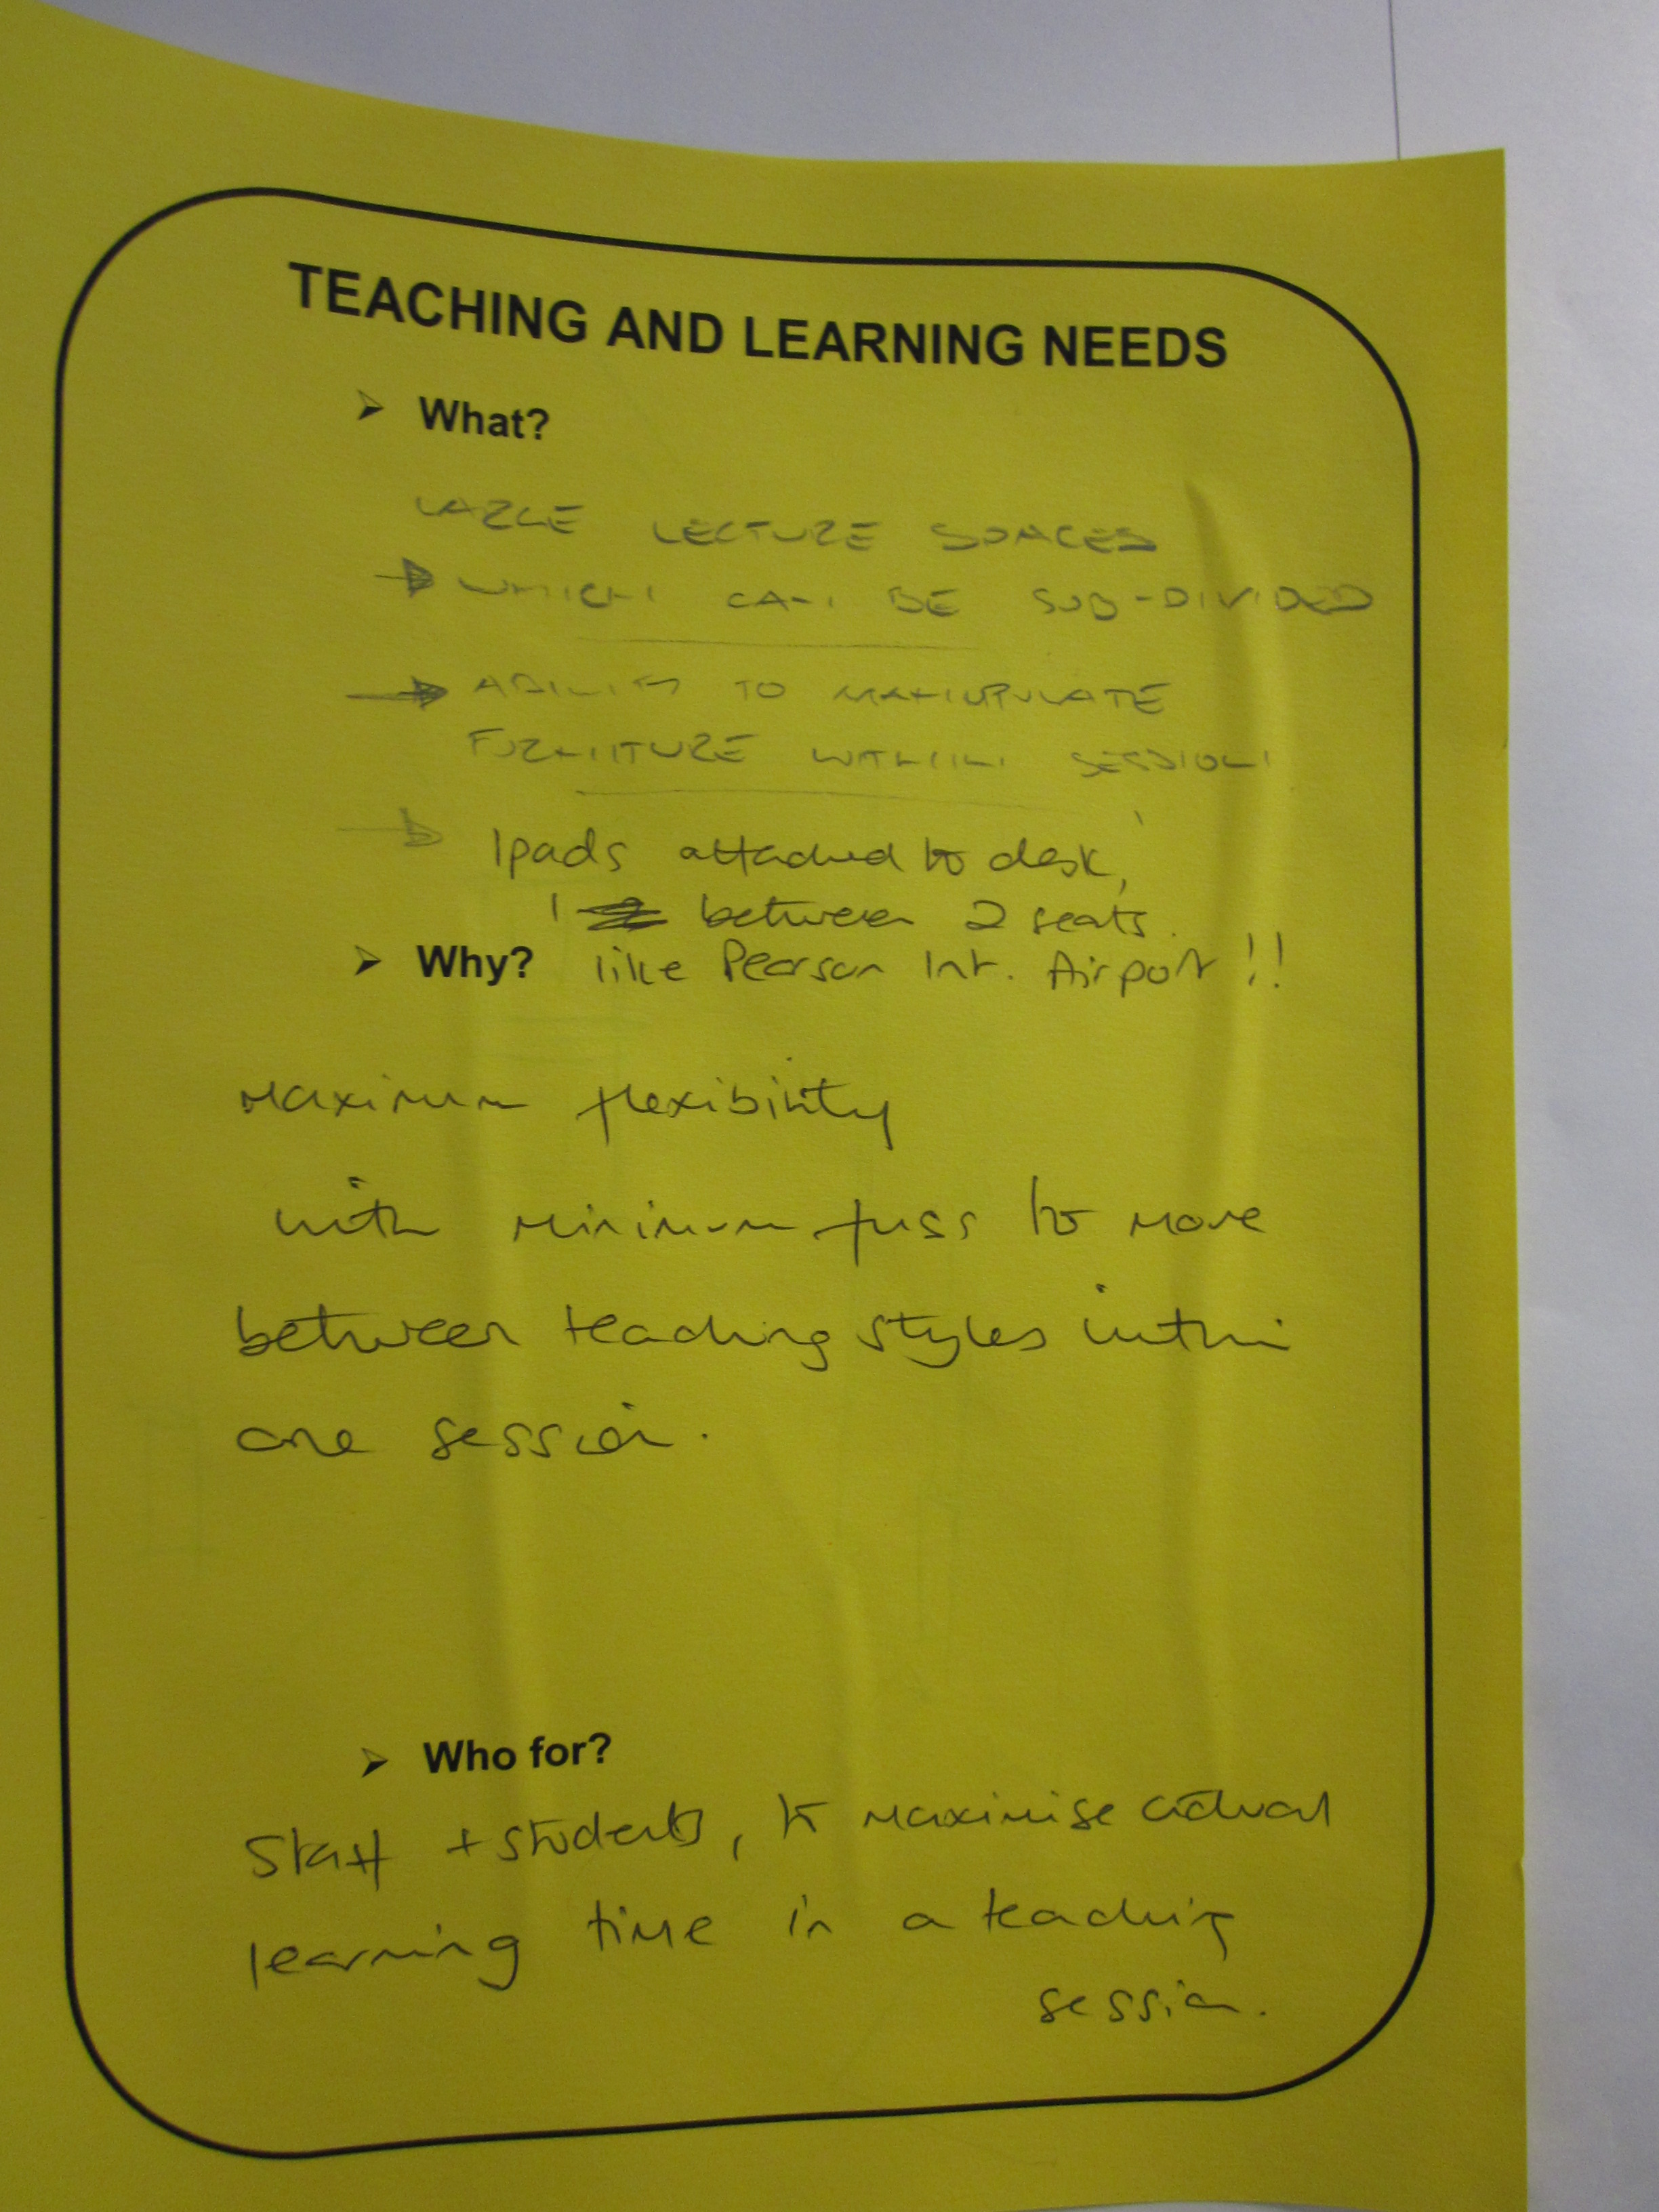 TEACHING AND LEARNING NEEDS
➢ What?
LARGE LECTURE SPACES
→ WHICH CAN BE SUB-DIVIDED
→ ABILITY TO MANIUPULATE
FURNITURE WITHIN SESSION
→ Ipads attached to desk,
1 between 2 seats.
➢ Why? like Pearson Int. Airport!!
Maximum flexibility
with minimum fuss to move
between teaching styles within
one session.
➢ Who for?
Staff + students, to maximise actual
learning time in a teaching
session.